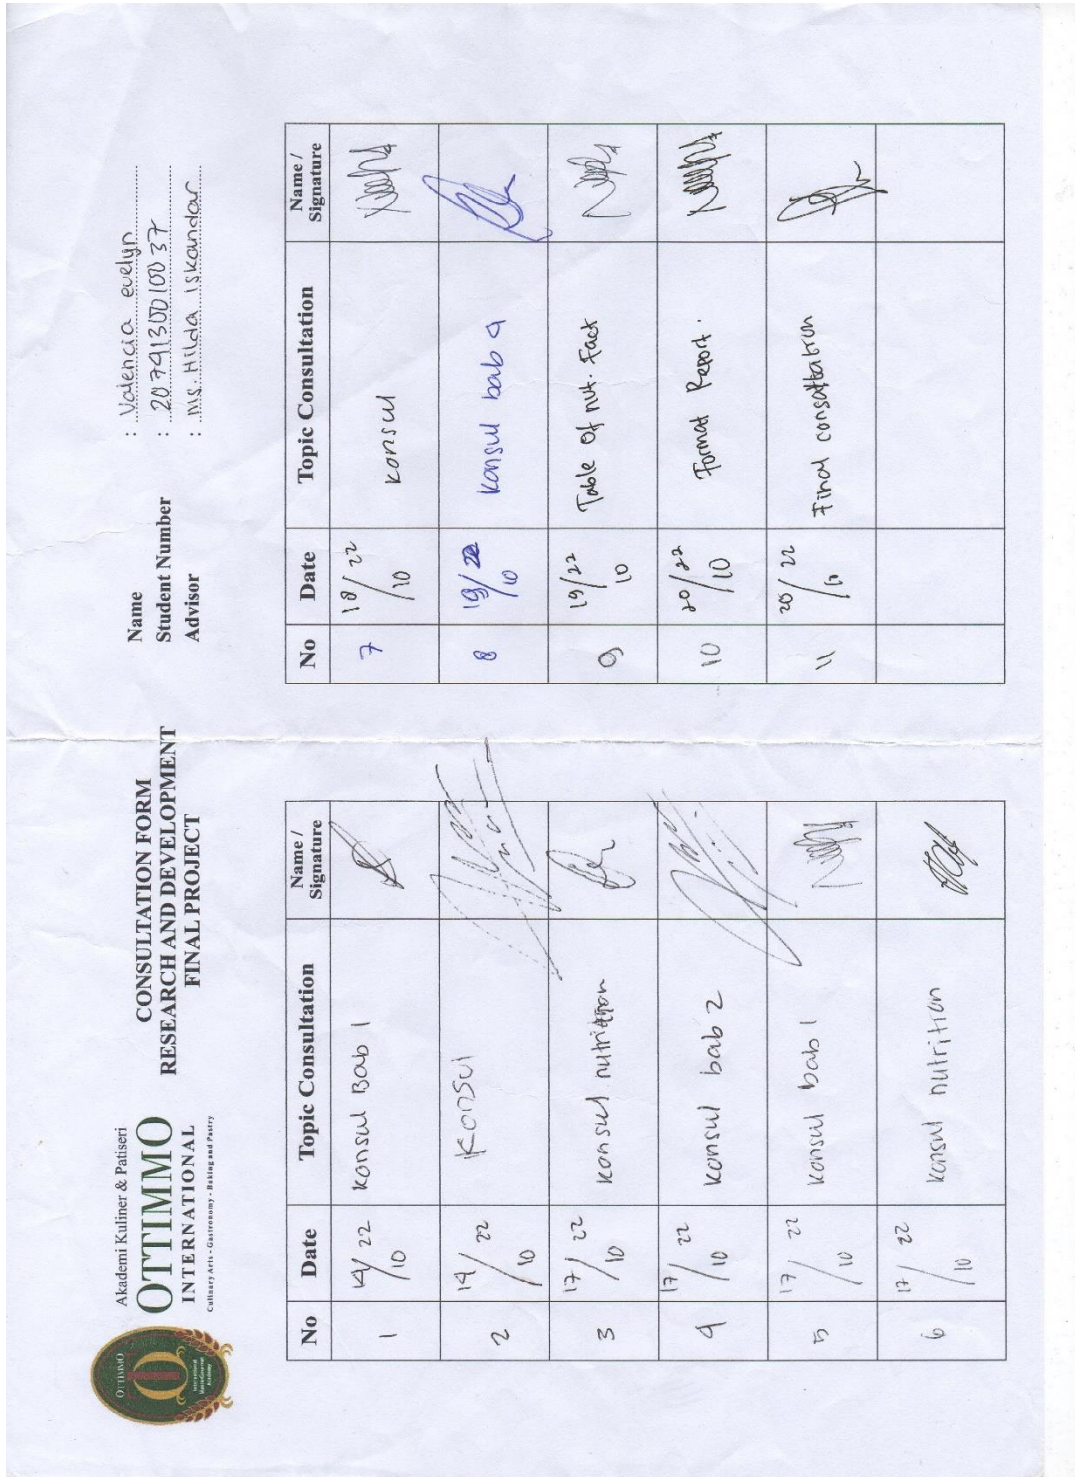 Akademi Kuliner & Patiseri
OTTIMMO
INTERNATIONAL
Culinary Arts - Gastronomy - Baking and Pastry
OTTIMMO
CONSULTATION FORM
RESEARCH AND DEVELOPMENT
FINAL PROJECT
Name : Valencia evelyn
Student Number : 2074130010037
Advisor : Ms. Hilda Iskandar
No Date Topic Consultation Name / Signature
1 14/10 22 Konsul Bab 1
2 14/10 22 Konsul
3 17/10 22 Konsul nutrition
4 17/10 22 Konsul bab 2
5 17/10 22 Konsul bab 1
6 17/10 22 Konsul nutrition
No Date Topic Consultation Name / Signature
7 18/10 22 Konsul
8 19/10 22 Konsul bab 4
9 19/10 22 Table Of nut. Fact
10 20/10 22 Format Report.
11 20/ 22 Final